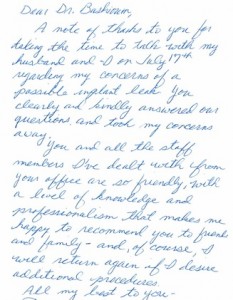 Dear Dr. Bashioum,
A note of thanks to you for
taking the time to talk with my
husband and I on July 17th
regarding my concerns of a
possible implant leak. You
clearly and kindly answered our
questions, and took my concerns
away.
You and all the staff
members I've dealt with from
your office are so friendly, with
a level of knowledge and
professionalism that makes me
happy to recommend you to friends
and family - and, of course, I
will return again if I desire
additional procedures.
All my best to you -